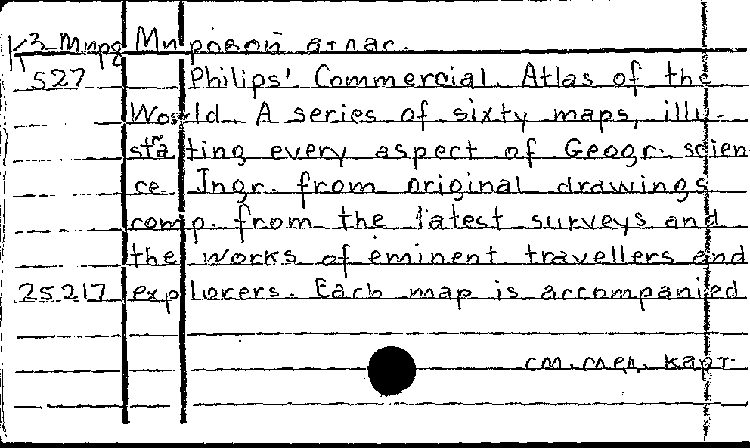 К3 Мирд Мировой атлас.
527 Philips' Commercial Atlas of the
World. A series of sixty maps, illu-
strating every aspect of Geogr. scien
ce. Ingr. from original drawings
comp. from the latest surveys and
the works of eminent travellers and
25217 explorers. Each map is accompanied
см. след. карт.